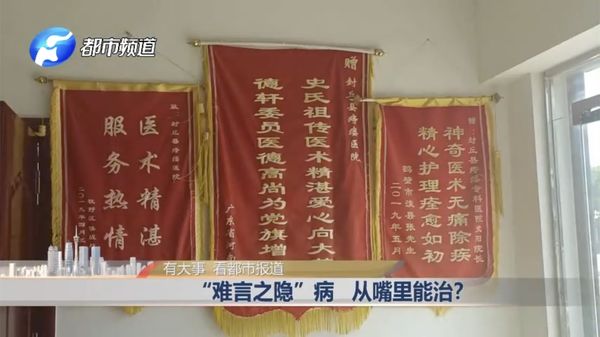 都市频道
封丘县痔瘘医院
医术精湛
服务热情
赠 封丘县痔瘘医院
史氏祖传医术精湛爱心向大
德轩委员医德高尚为党旗增
广东省河南
神奇医术无痛除疾
精心护理痊愈如初
鹤壁市浚县张先生
二〇一九年五月
有大事 看都市报道
“难言之隐”病 从嘴里能治?